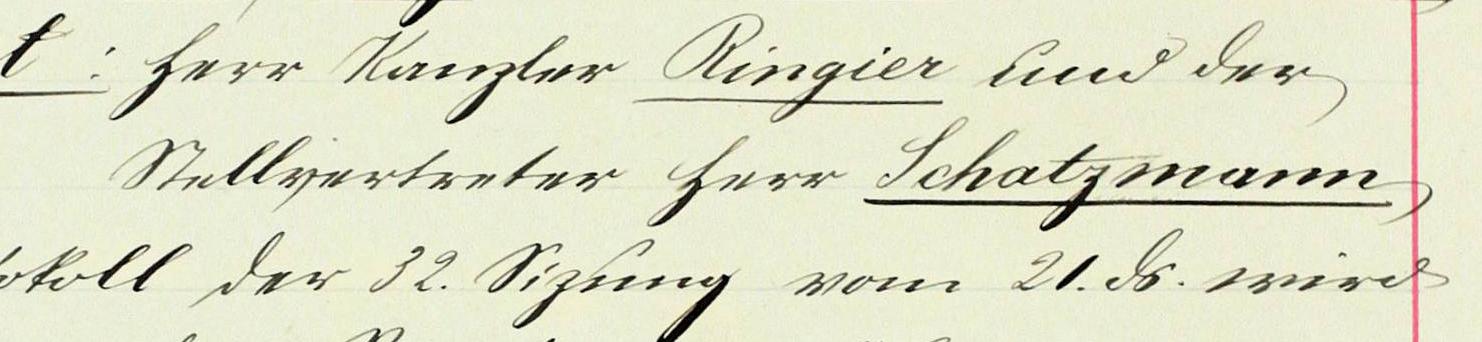 t: Herr Kanzler Ringier und der
Stellvertreter Herr Schatzmann
okoll der 32. Sizung vom 21. ds. wird